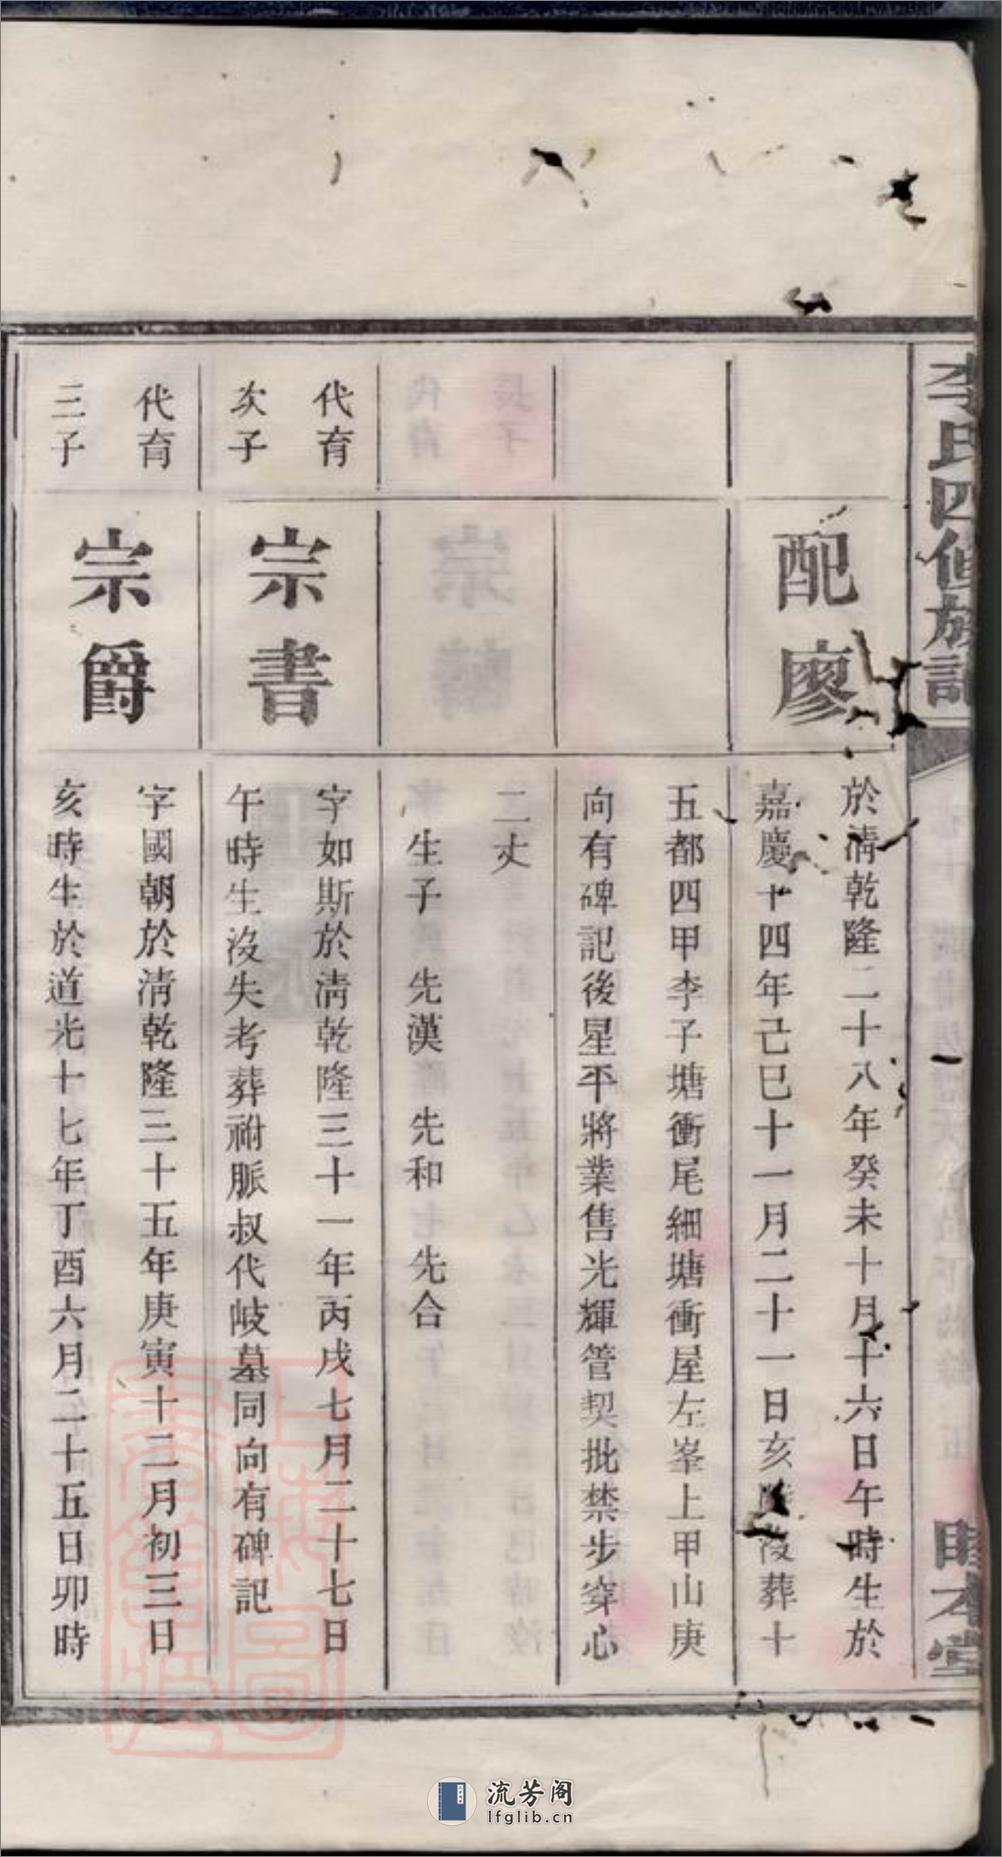 李氏四修族記
睦本堂
配廖
於清乾隆二十八年癸未十月十六日午時生於
嘉慶十四年己巳十一月二十一日亥時没葬十
五都四甲李子塘衝尾細塘衝屋左峯上甲山庚
向有碑記後星平將業售光輝管契批禁步穿心
二丈
生子 先漢 先和 先合
代育
次子
宗書
字如斯於清乾隆三十一年丙戌七月二十七日
午時生没失考葬祔脈叔代岐墓同向有碑記
代育
三子
宗爵
字國朝於清乾隆三十五年庚寅十二月初三日
亥時生於道光十七年丁酉六月二十五日卯時
流芳阁
lfglib.cn